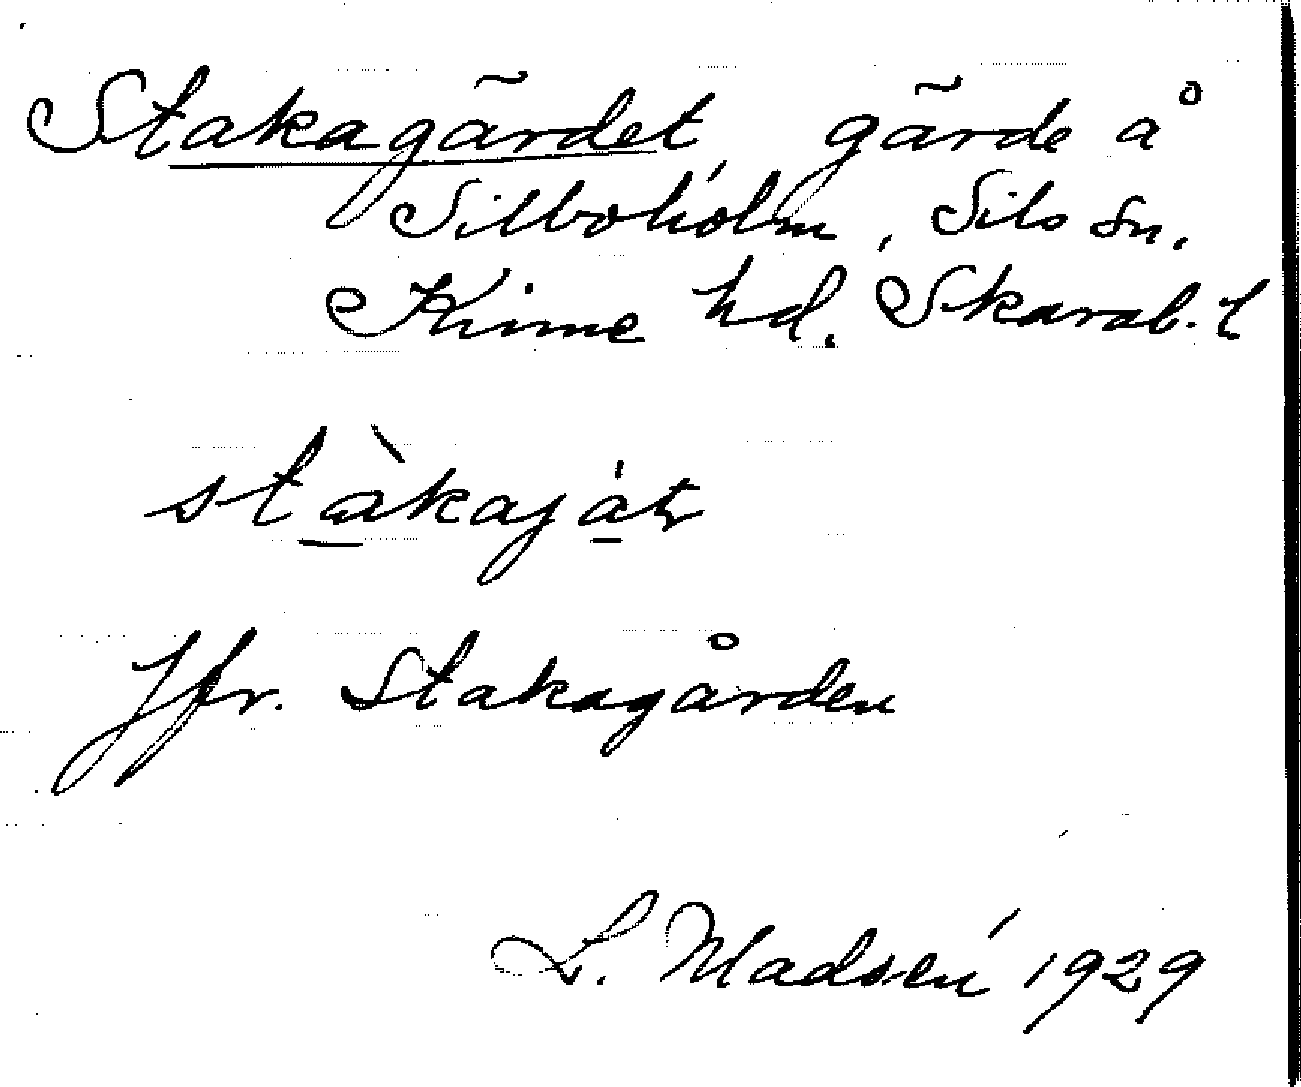 Stakagärdet, gärde å
Silboholm, Sils sn,
Kinne hd. Skarab. l
stàkaját
Jfr. Stakagården
L. Madsén 1929